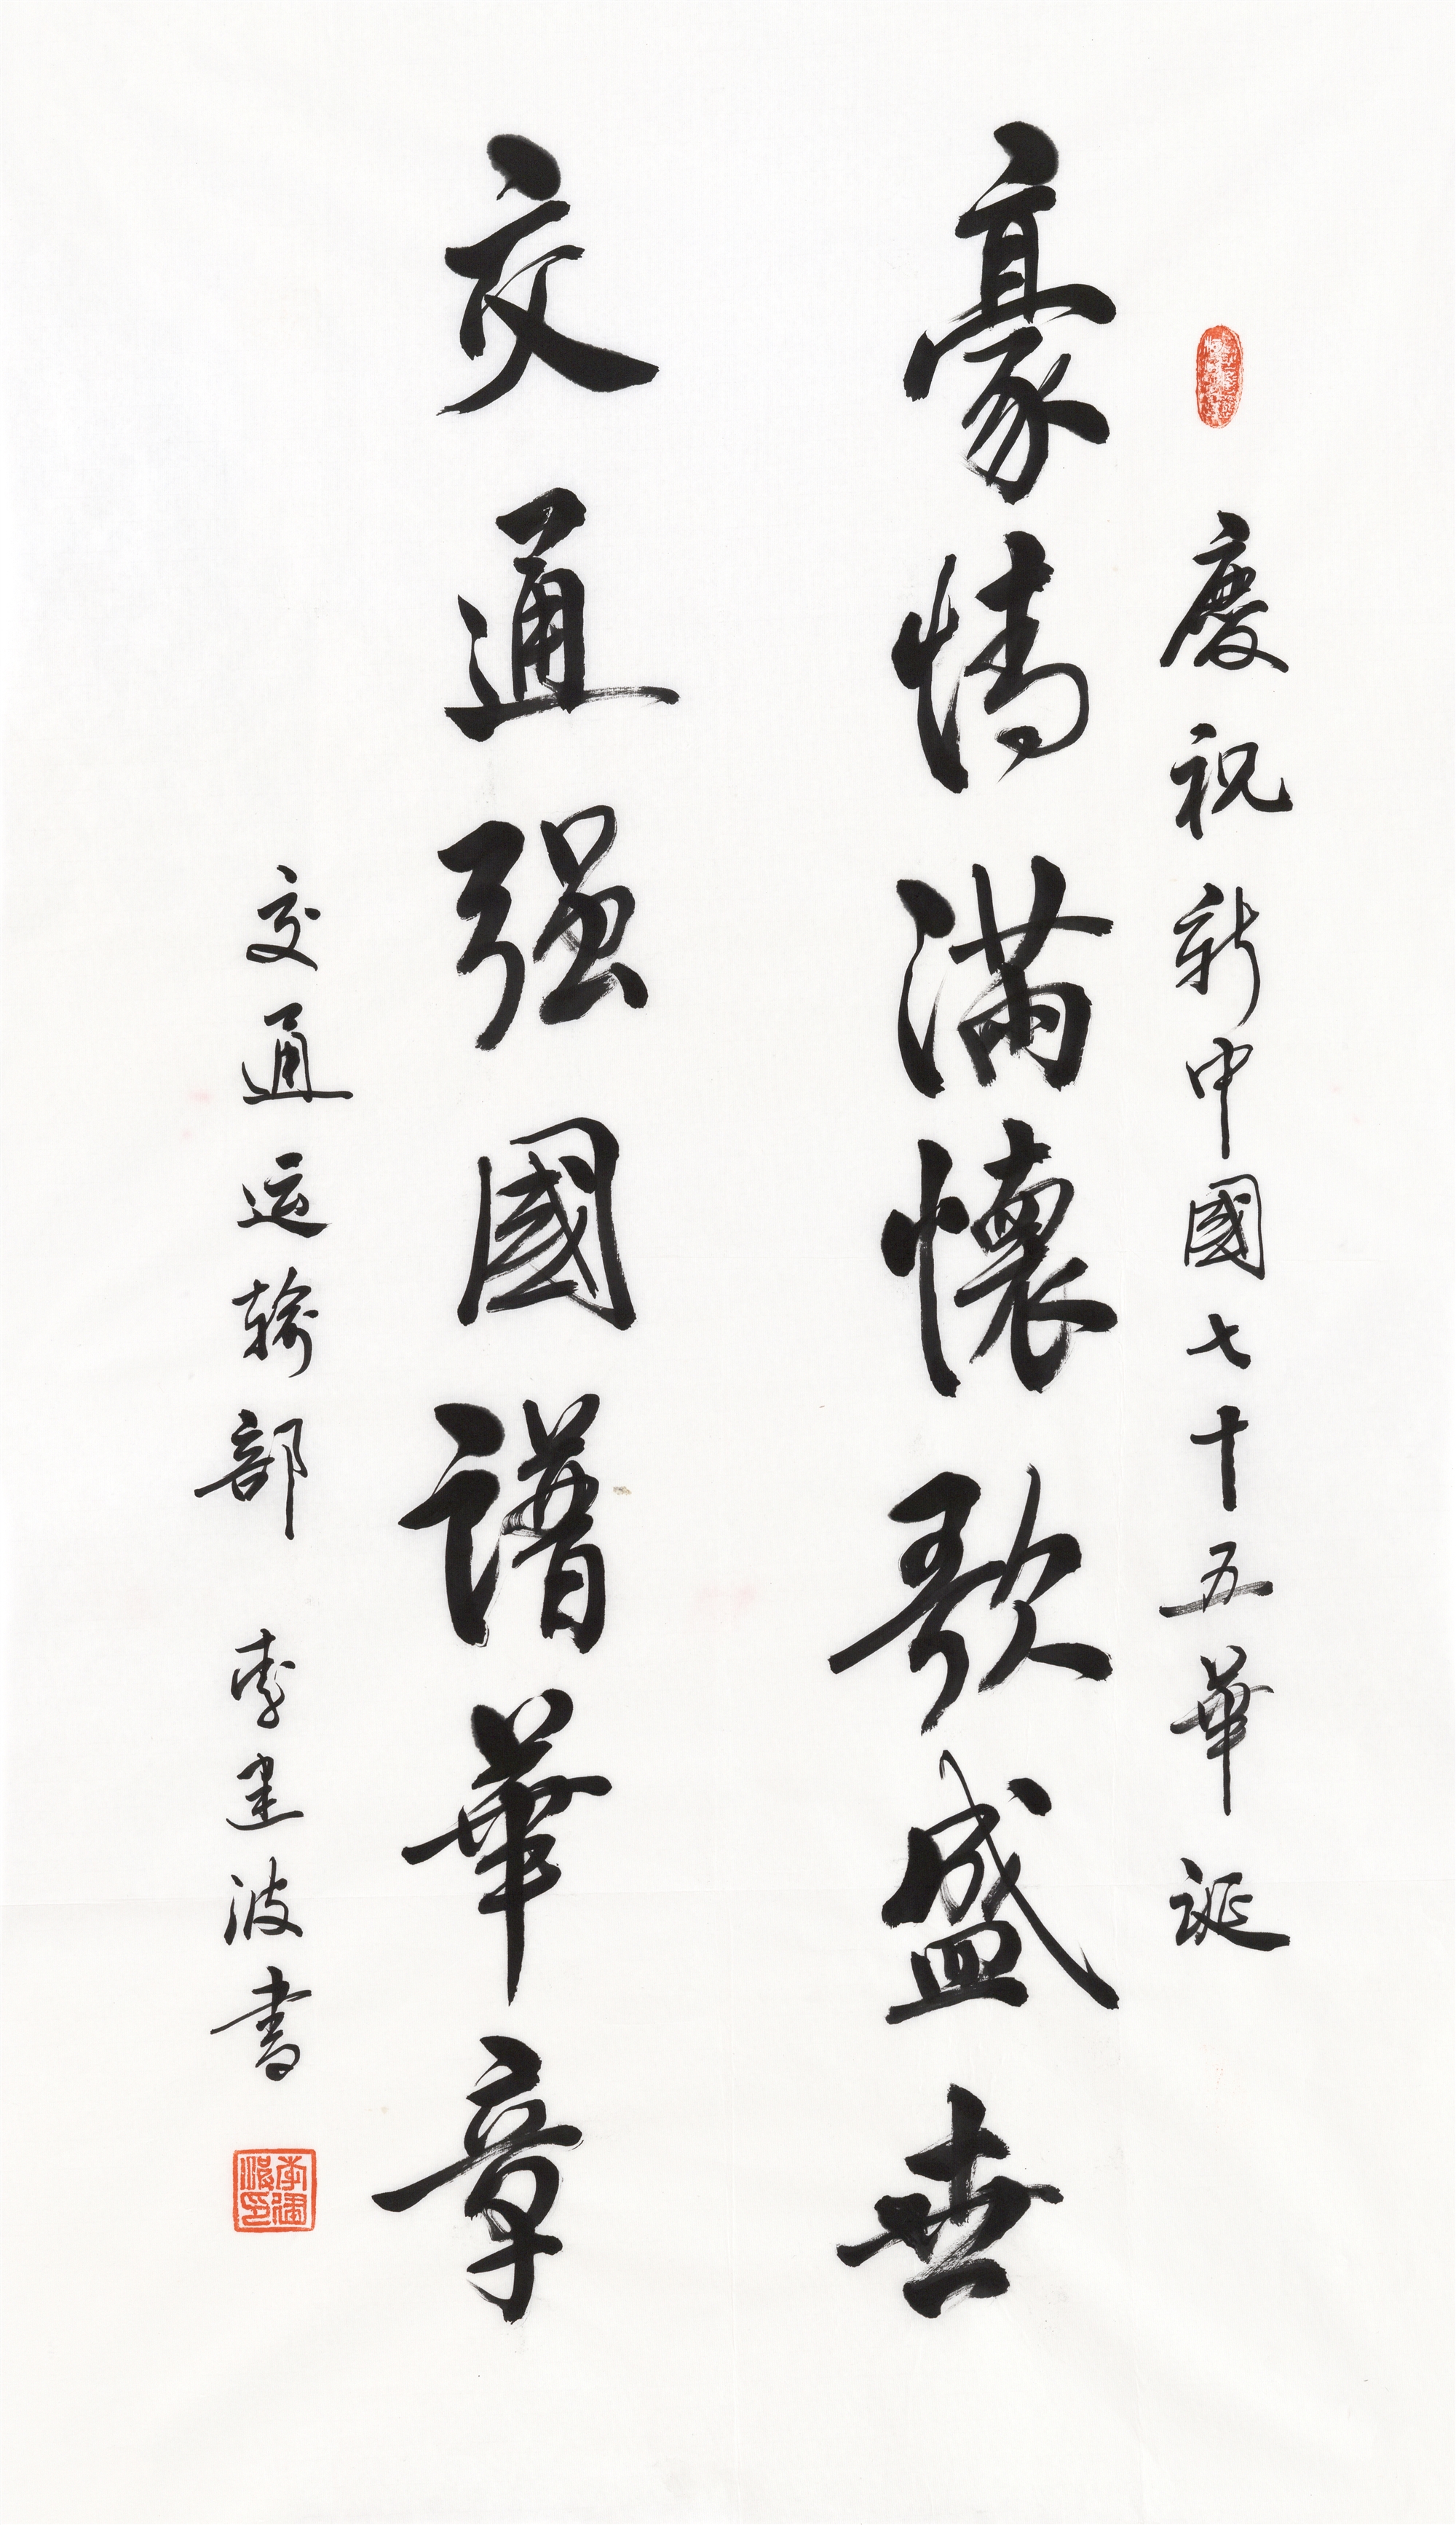 慶祝新中國七十五華誕
豪情滿懷歌盛世
交通强國譜華章
交通运輸部 李建波書
李建波印